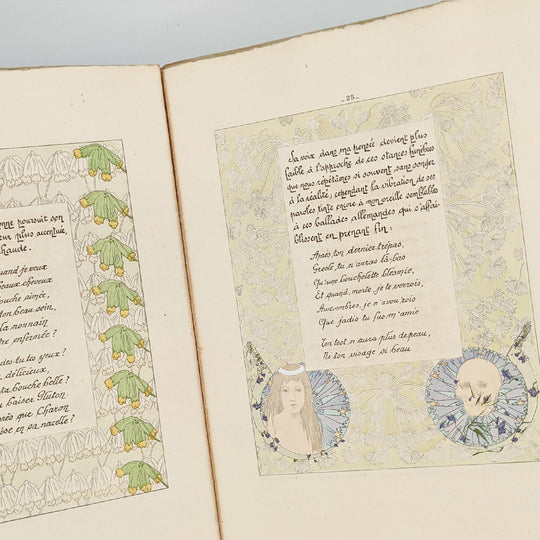 poursuit son
plus accentuée,
chaude.
quand je veux
beaux cheveux
bouche aimée,
ton beau sein,
la nonnain
enfermée?
tu tes yeux?
délicieux,
ta bouche belle?
baiser Gluton
après que Charon
en sa nacelle?
-25-
Sa voix dans ma pensée devient plus
faible à l'approche de ces stances funèbres
que nous répétâmes si souvent, sans songer
à la réalité; cependant la vibration de ses
paroles tinte encore à mon oreille semblable
à ces ballades allemandes qui s'affai-
blissent en prenant fin:
Après ton dernier trépas,
Gresle, tu n'auras là-bas
Qu'une bouchelette blesmie,
Et quand, morte, je te verrois,
Aux ombres, je n'avou'rois
Que jadis tu fus m'amie
Ton test n'aura plus de peau,
Ni ton visage si beau